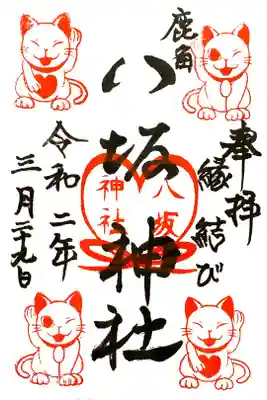 奉拝
縁結び
鹿角
八坂神社
八坂
神社
令和二年
三月二十九日